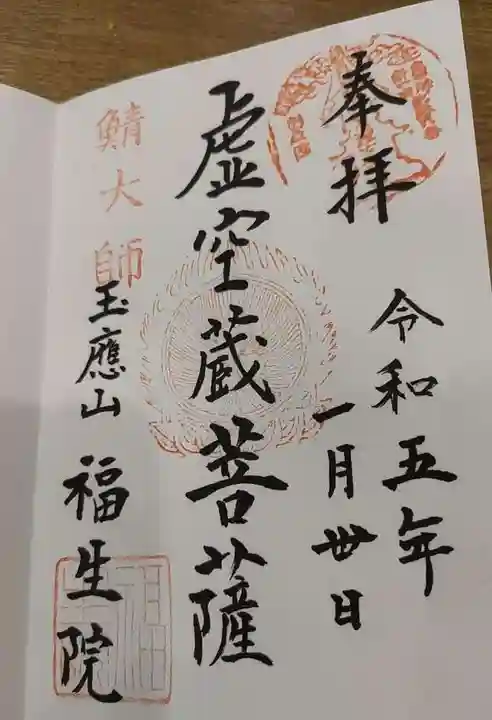 奉拝
令和五年
一月丗日
虚空蔵菩薩
鯖大師
玉應山
福生院